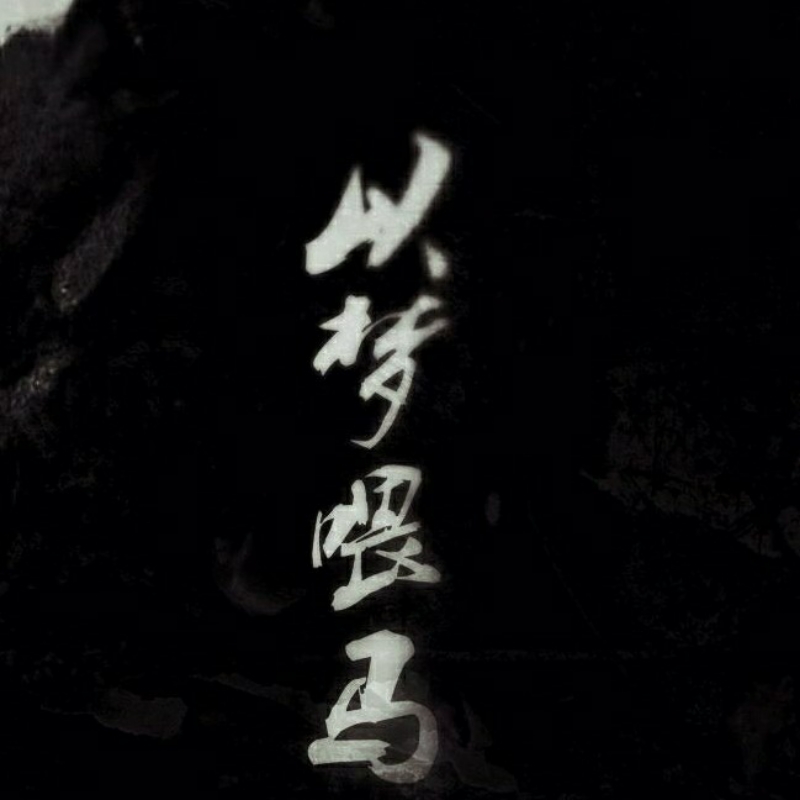 以梦喂马